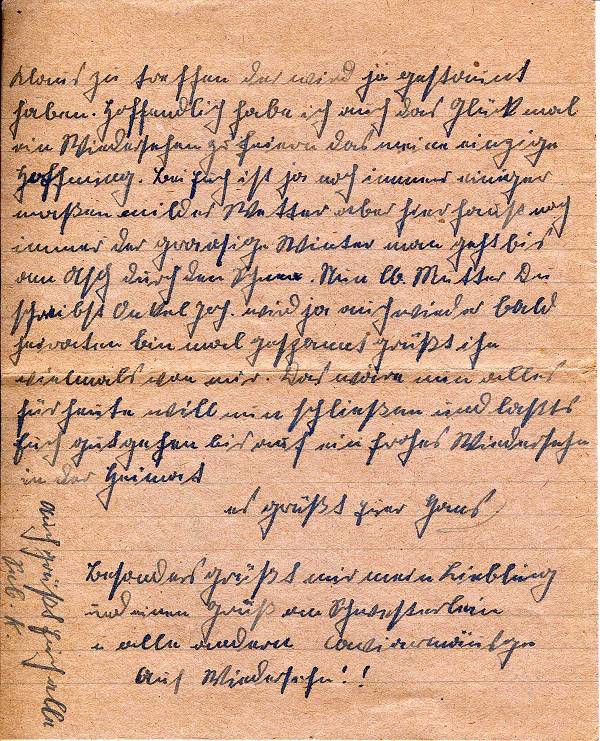 Klaus zu treffen der wird ja gestaunt
haben. Hoffendlich habe ich auch das Glück mal
ein Wiedersehen zu feiern das meine einzige
Hoffnung. Bei Euch ist ja noch immer einiger
maßen milder Wetter aber hier haust noch
immer der grausige Winter man geht bis
am Asch durch den Schnee. Nun lb. Mutter Du
schreibst Onkel Joh. wird ja auch wieder bald
heiraten bin mal gespannt grüßt ihn
vielmals von mir. Das wäre nun alles
für heute will nun schließen und laßts
Euch gutgehen bis auf ein frohes Wiedersehn
in der Heimat
es grüßt Euer Hans
Besonders grüßt mir mein Liebling
und einen Gruß an Schwesterlein
u alle andern
Auf Wiedersehn!!
auch grüßt Euch alle